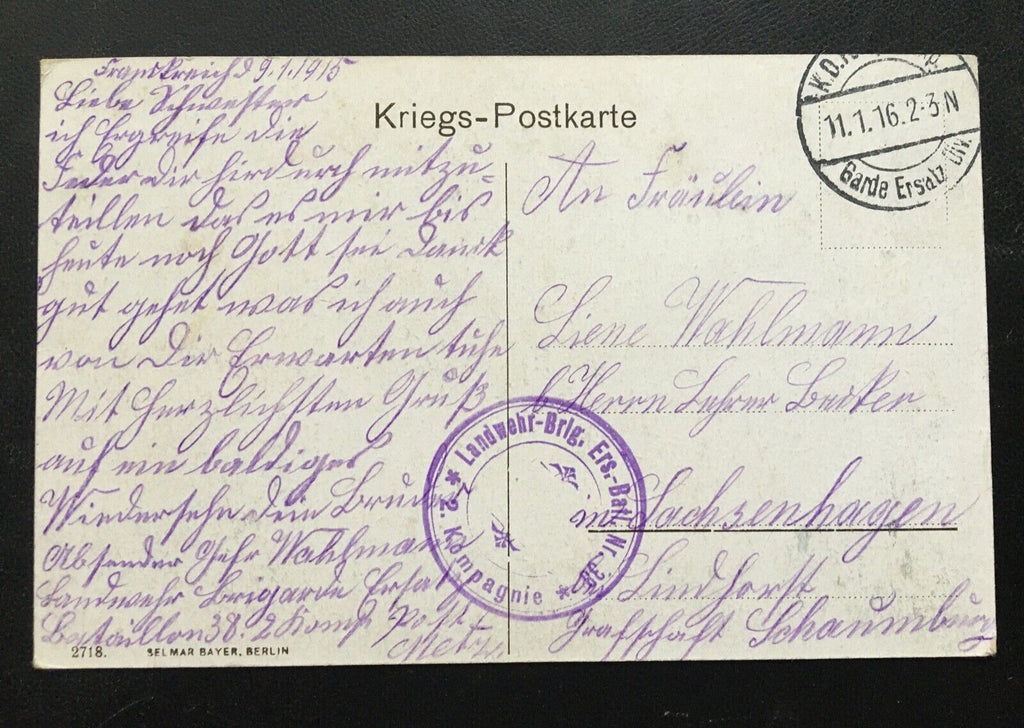 Frankreich d 9.1.1915
Liebe Schwester
ich Ergreife die
Feder dir hirdurch mitzu=
teillen das es mir bis
heute noch Gott sei Danck
gut gehet was ich auch
von Dir Erwarten tuhe
Mit Herzlichsten Gruß
auf ein baldiges
Wiedersehn dein Bruder
Absender Gefr Wahlmann
Landwehr Brigarde Ersatz
Bataillon 38. 2 Komp Post
Metz
2718. SELMAR BAYER, BERLIN
Kriegs-Postkarte
K.D.
11.1.16.2-3N
Garde Ersatz Div.
An Fräulein
Liene Wahlmann
b Herrn Lehrer Becker
in Sachsenhagen
Lindhorst
Grafschaft Schaumburg
* Landwehr-Brig. Ers.-Batl. Nr. 38. *
2. Kompagnie